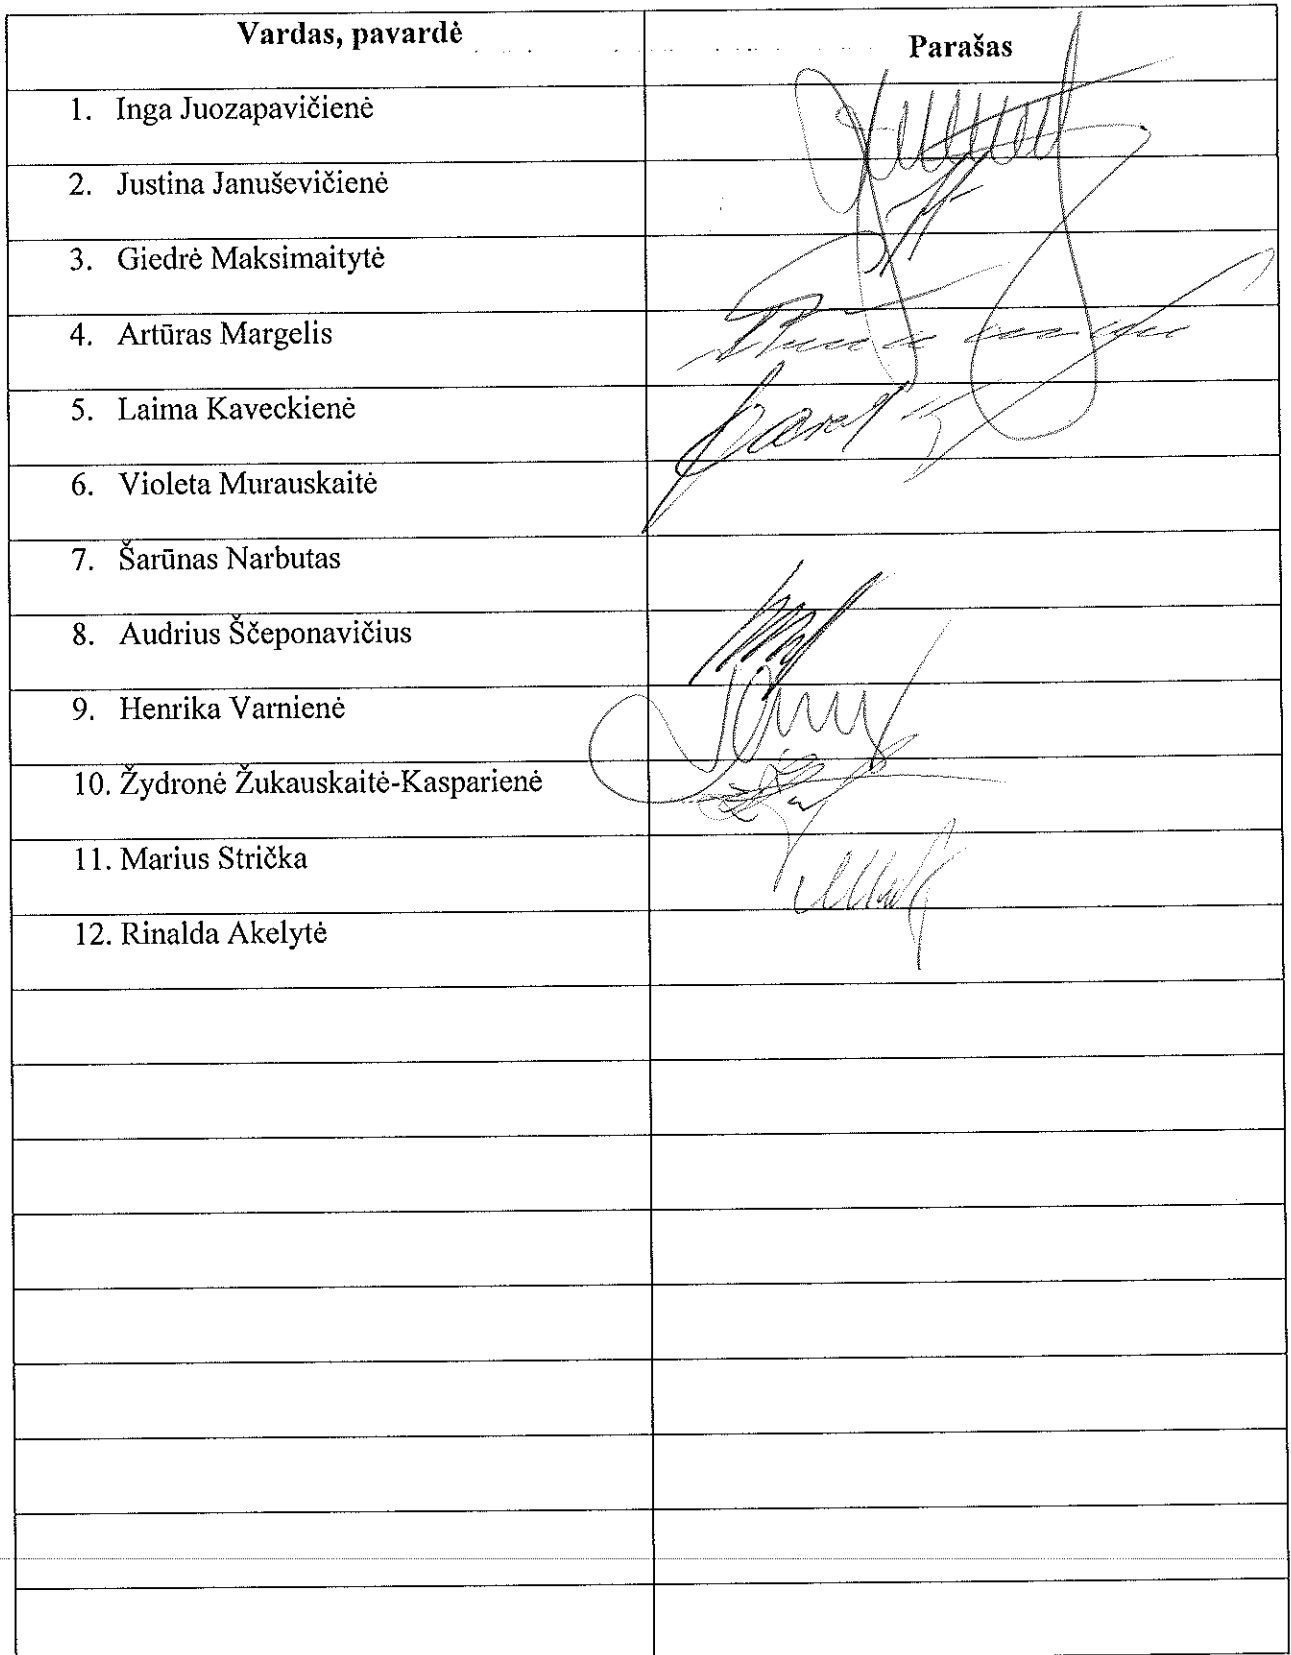 Vardas, pavardė
Parašas
1. Inga Juozapavičienė
2. Justina Januševičienė
3. Giedrė Maksimaitytė
4. Artūras Margelis
5. Laima Kaveckienė
6. Violeta Murauskaitė
7. Šarūnas Narbutas
8. Audrius Ščeponavičius
9. Henrika Varnienė
10. Žydronė Žukauskaitė-Kasparienė
11. Marius Strička
12. Rinalda Akelytė